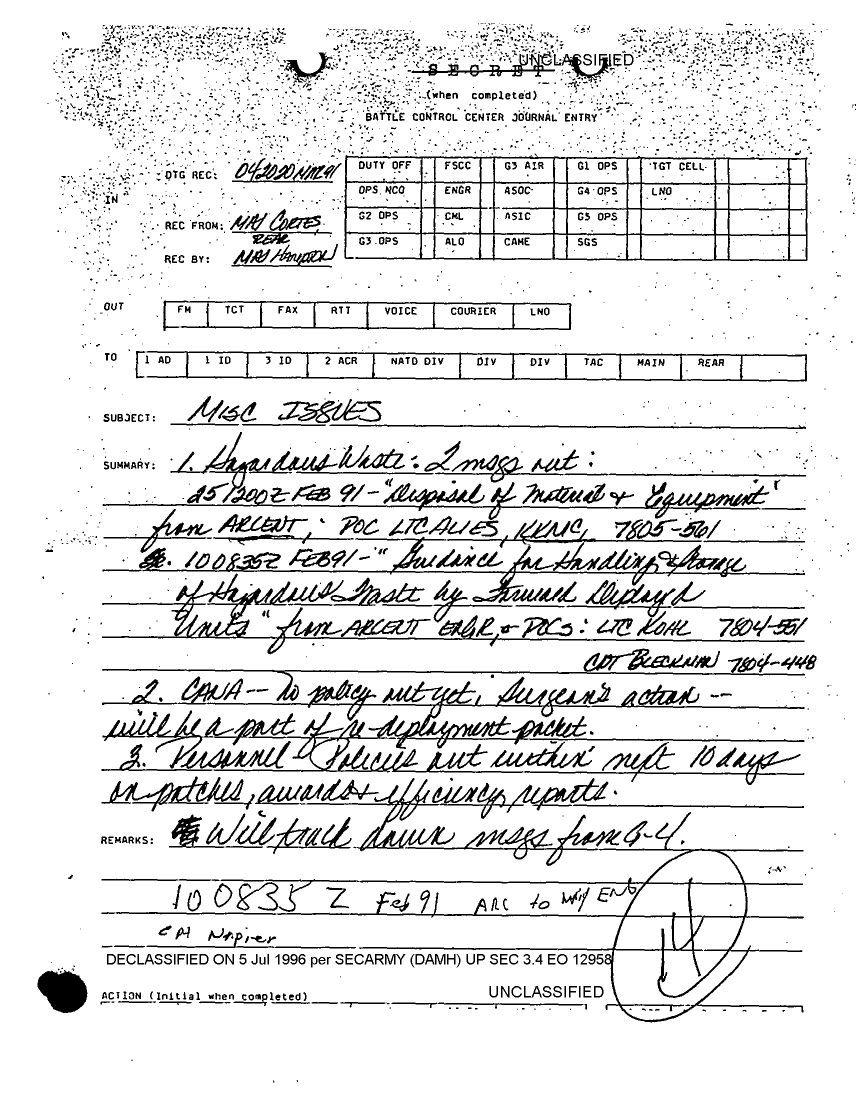 UNCLASSIFIED
SECRET
(when completed)
BATTLE CONTROL CENTER JOURNAL ENTRY
DTG REC: 042020 MAR 91
IN
REC FROM: MAJ CORTES,
REAR
REC BY: MAJ Hampton
DUTY OFF FSCC G3 AIR G1 OPS TGT CELL
OPS NCO ENGR ASOC G4 OPS LNO
G2 OPS CML ASIC G5 OPS
G3 OPS ALO CAME SGS
OUT FM TCT FAX RTT VOICE COURIER LNO
TO 1 AD 1 ID 3 ID 2 ACR NATO DIV DIV DIV TAC MAIN REAR
SUBJECT: MISC ISSUES
SUMMARY: 1. Hazardous Waste: 2 msgs out:
251200Z FEB 91 - "Disposal of Material & Equipment"
from ARCENT; POC LTC ALIES, KKMC, 7805-561
100835Z FEB 91 - "Guidance for Handling & Storage
of Hazardous Waste by Forward Deploy'd
Units" from ARCENT ENGR, POCs: LTC KOHL 7804-551
CPT BLECKMAN 7804-448
2. CANA -- No policy out yet; Surgeon's action --
will be a part of re-deployment packet.
3. Personnel - Policies out within next 10 days
on patches, awards & efficiency reports.
REMARKS: Will track down msgs from G-4.
100835 Z Feb 91 ARC to ENG
Napier
14
DECLASSIFIED ON 5 Jul 1996 per SECARMY (DAMH) UP SEC 3.4 EO 12958
UNCLASSIFIED
ACTION (Initial when completed)